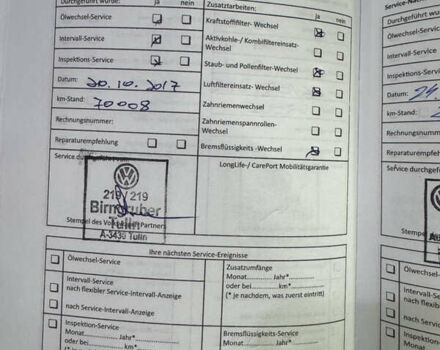 Durchgeführt wurde: ja nein
Ölwechsel-Service
Intervall-Service
Inspektions-Service
Datum: 20.10.2017
km-Stand: 70008
Rechnungsnummer:
Reparaturempfehlung
Service durchgeführt
219 / 219
Birngruber
Tulln
A-3430 Tulln
Stempel des Volkswagen Partners
Zusatzarbeiten: ja nein
Kraftstofffilter- Wechsel
Aktivkohle-/ Kombifiltereinsatz-
Wechsel
Staub- und Pollenfilter-Wechsel
Luftfiltereinsatz-Wechsel
Zahnriemenwechsel
Zahnriemenspannrollen-
Wechsel
Bremsflüssigkeits -Wechsel
LongLife-/ CarePort Mobilitätsgarantie
Ihre nächsten Service-Ereignisse
Ölwechsel-Service
Intervall-Service
nach flexibler Service-Intervall-Anzeige
nach Service-Intervall-Anzeige
Inspektion-Service
Monat Jahr*
Zusatzumfänge
Monat Jahr*
oder bei km*
(* je nachdem, was zuerst eintritt)
Bremsflüssigkeits-Service
Monat Jahr*
Service-Na
Durchgeführt w
Ölwechsel-Servic
Intervall-Service
Inspektions-Serv
Datum: 24
km-Stand:
Rechnungsnumm
Reparaturempfeh
Service durchgefü
Stempel des
Ölwechsel-
Intervall-Se
nach flexib
nach Servic
Inspektion
Monat